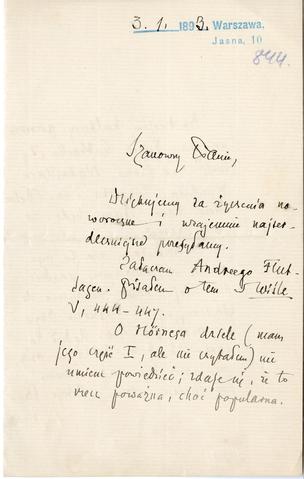 3. 1. 1893. Warszawa.
Jasna, 10
844
Szanowny Panie,
Dziękujemy za życzenia no-
woroczne i wzajemnie najser-
deczniejsze przesyłamy.
Załączam Andreego Flut-
sagen. Pisałem o tem w Wiśle
V, 444-447.
O dziele (mam
jego część I, ale nie czytałem) nic
umiem powiedzieć; zdaje się, że to
rzecz poważna, choć popularna.